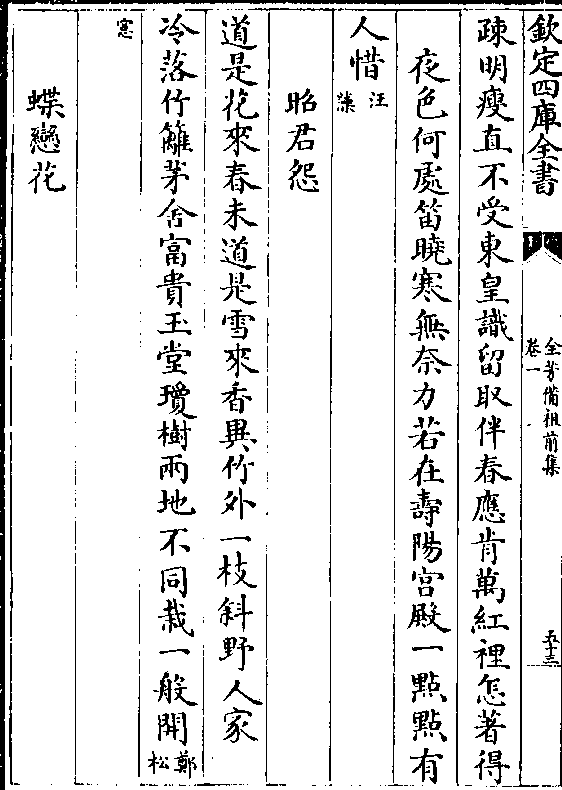 欽定四庫全書
全芳備祖前集
卷一
五十三
疎明瘦直不受東皇識留取伴春應肯萬紅裡怎著得
夜色何處笛曉寒無奈力若在壽陽宮殿一點點有
人惜汪藻
昭君怨
道是花來春未道是雪來香異竹外一枝斜野人家
冷落竹籬茅舍富貴玉堂瓊樹兩地不同栽一般開鄭松
窓
蝶戀花